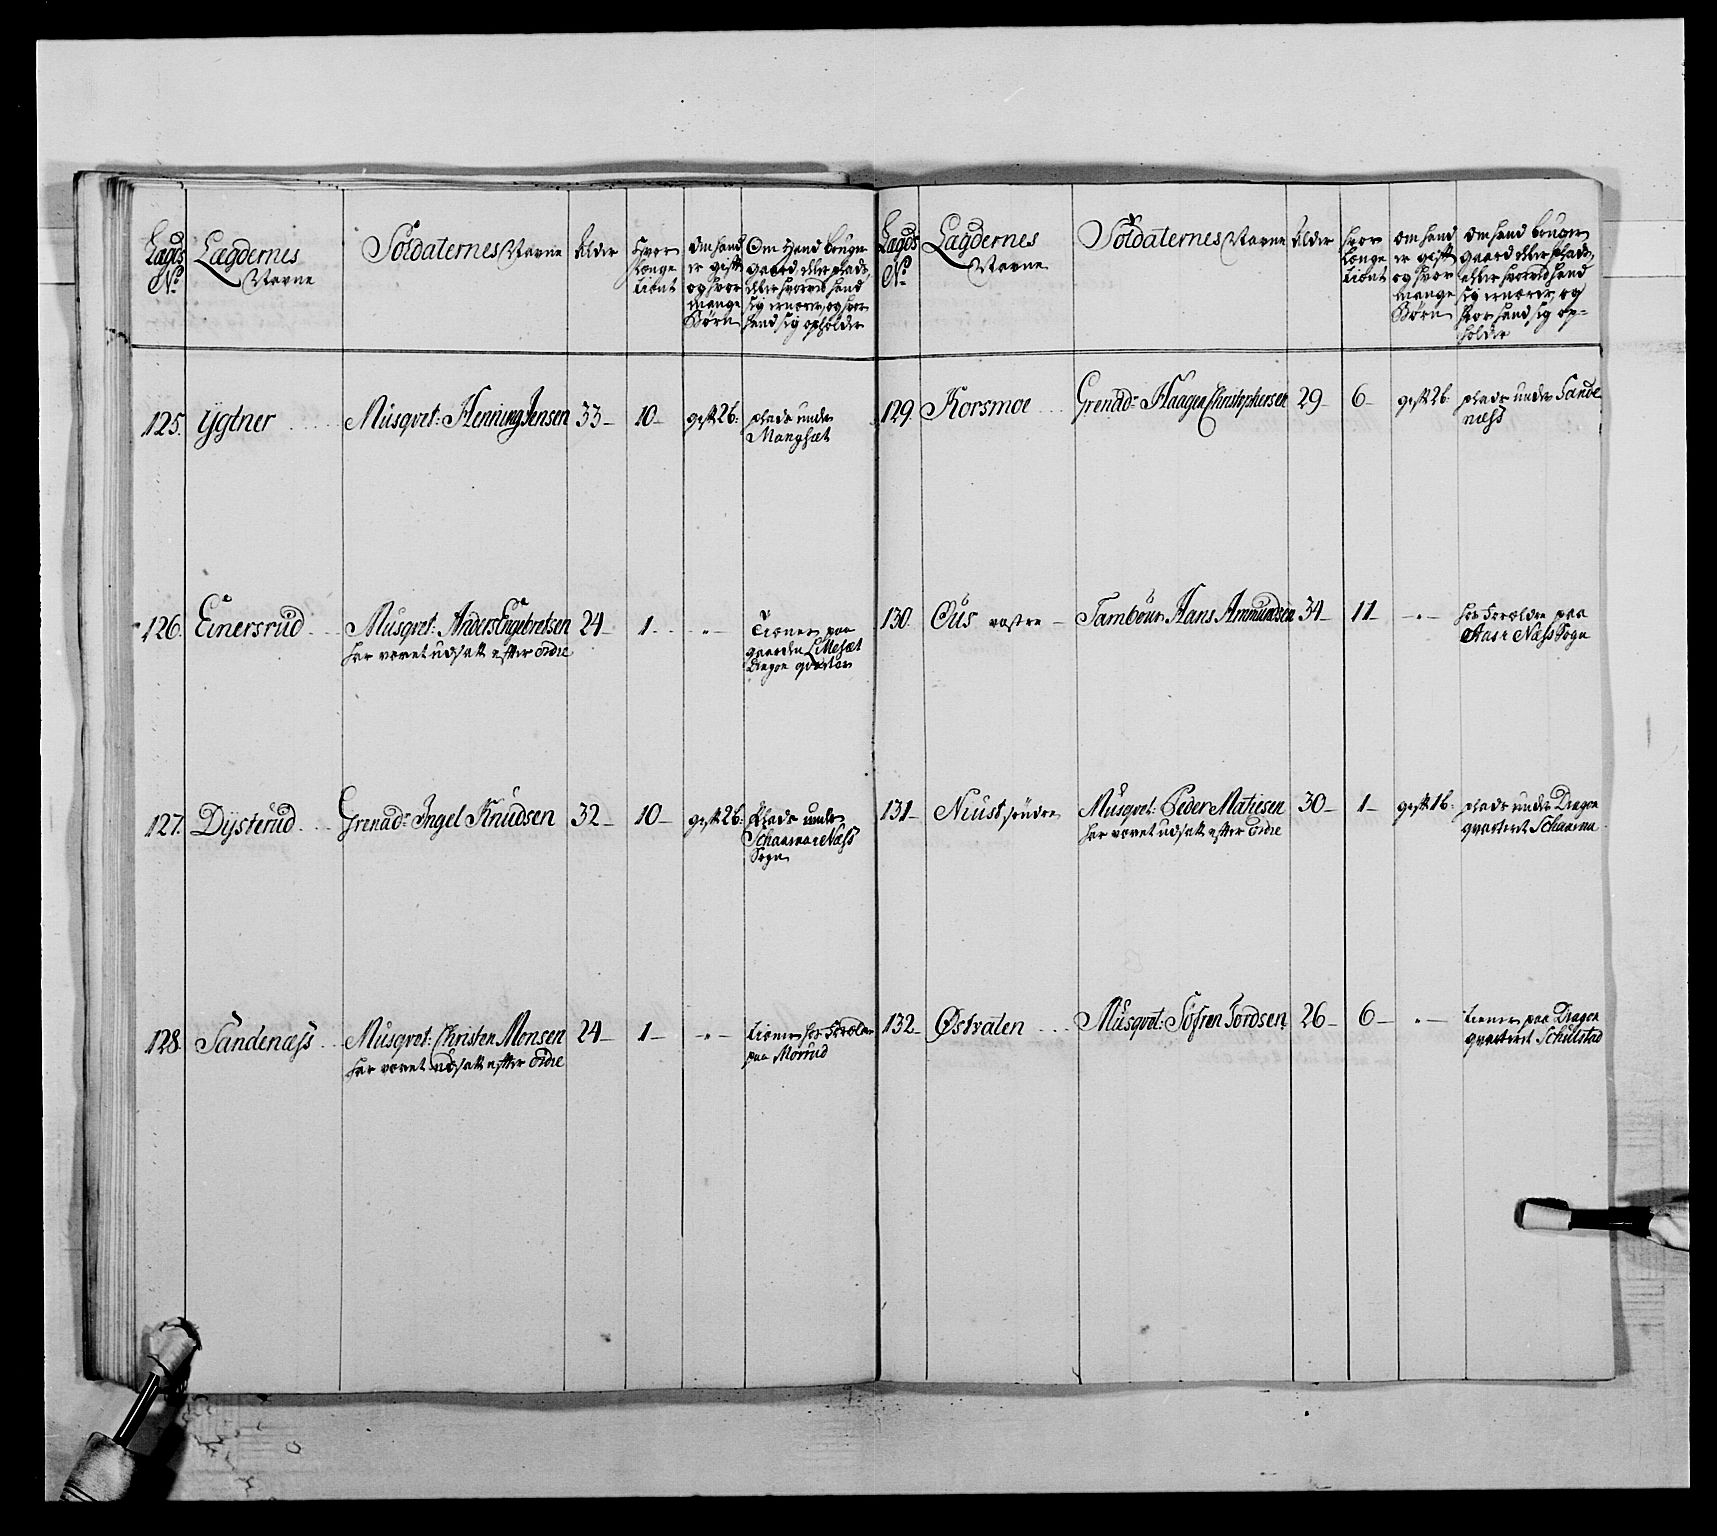 Lægds No
Lægdernes Navne
Soldaternes Navne
Alder
hvor længe tient
om hand er gift og hvor mange Børn
Om Hand bruger gaard eller plads, eller hvorved hand sig ernærer, og hvor hand sig opholder
125. Ygtner Musqvet: Henning Jensen 33 10 gift 2 b: plads under
Mangsæt
126. Einersrud Musqvet: Anders Engebretsen 24 1 tiener paa
har været udsatt efter ordre gaarden Lillesæt
Dragon qvarter
127. Dysterud Grenad: Ingel Knudsen 32 10 gift 2 b: Plads under
Schaarna i Næss
Sogn
128. Sandenæss Musqvet: Christen Monsen 24 1 tiener hos Forældr
har været udsatt efter ordre paa Morrud
Lægds No
Lægdernes Navne
Soldaternes Navne
Alder
hvor længe tient
om hand er gift og hvor mange Børn
om hand bruger gaard eller plads, eller hvorved hand sig ernærer, og hvor hand sig op-
holder
129. Korsmoe Grenad: Haagen Christophersen 29 6 gift 2 b plads under Sande
næss
130. Ous vestre Tambour Hans Ammundsen 34 11 hos Forældre paa
Aas i Næss Sogn
131 Niust søndre Musqvet: Peder Matiesen 30 1 gift 1 b: plads under Dragon
har været udsatt efter ordre qvarteret Schaarna
132 Østvalen Musqvet: Sofren Tordsen 26 6 tiener paa Dragon
qvarteret Schulstad